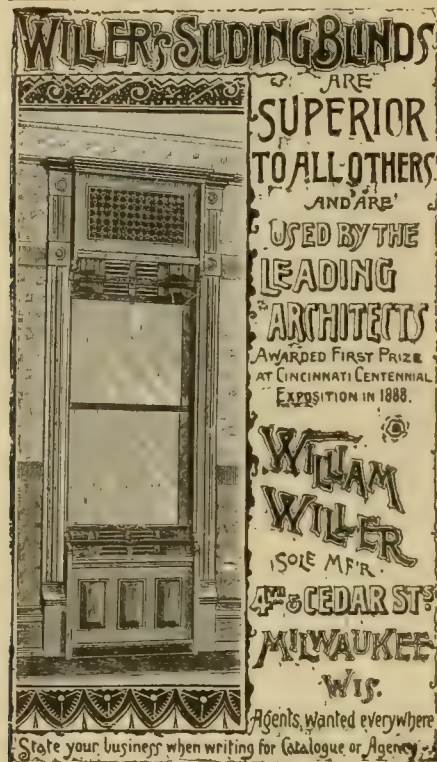 WILLER'S SLIDING BLINDS
ARE
SUPERIOR
TO ALL OTHERS
AND ARE
USED BY THE
LEADING
ARCHITECTS
AWARDED FIRST PRIZE
AT CINCINNATI CENTENNIAL
EXPOSITION IN 1888.
WILLIAM
WILLER
SOLE MF'R.
4TH & CEDAR STS
MILWAUKEE
WIS.
Agents, wanted everywhere
State your business when writing for Catalogue or Agency.